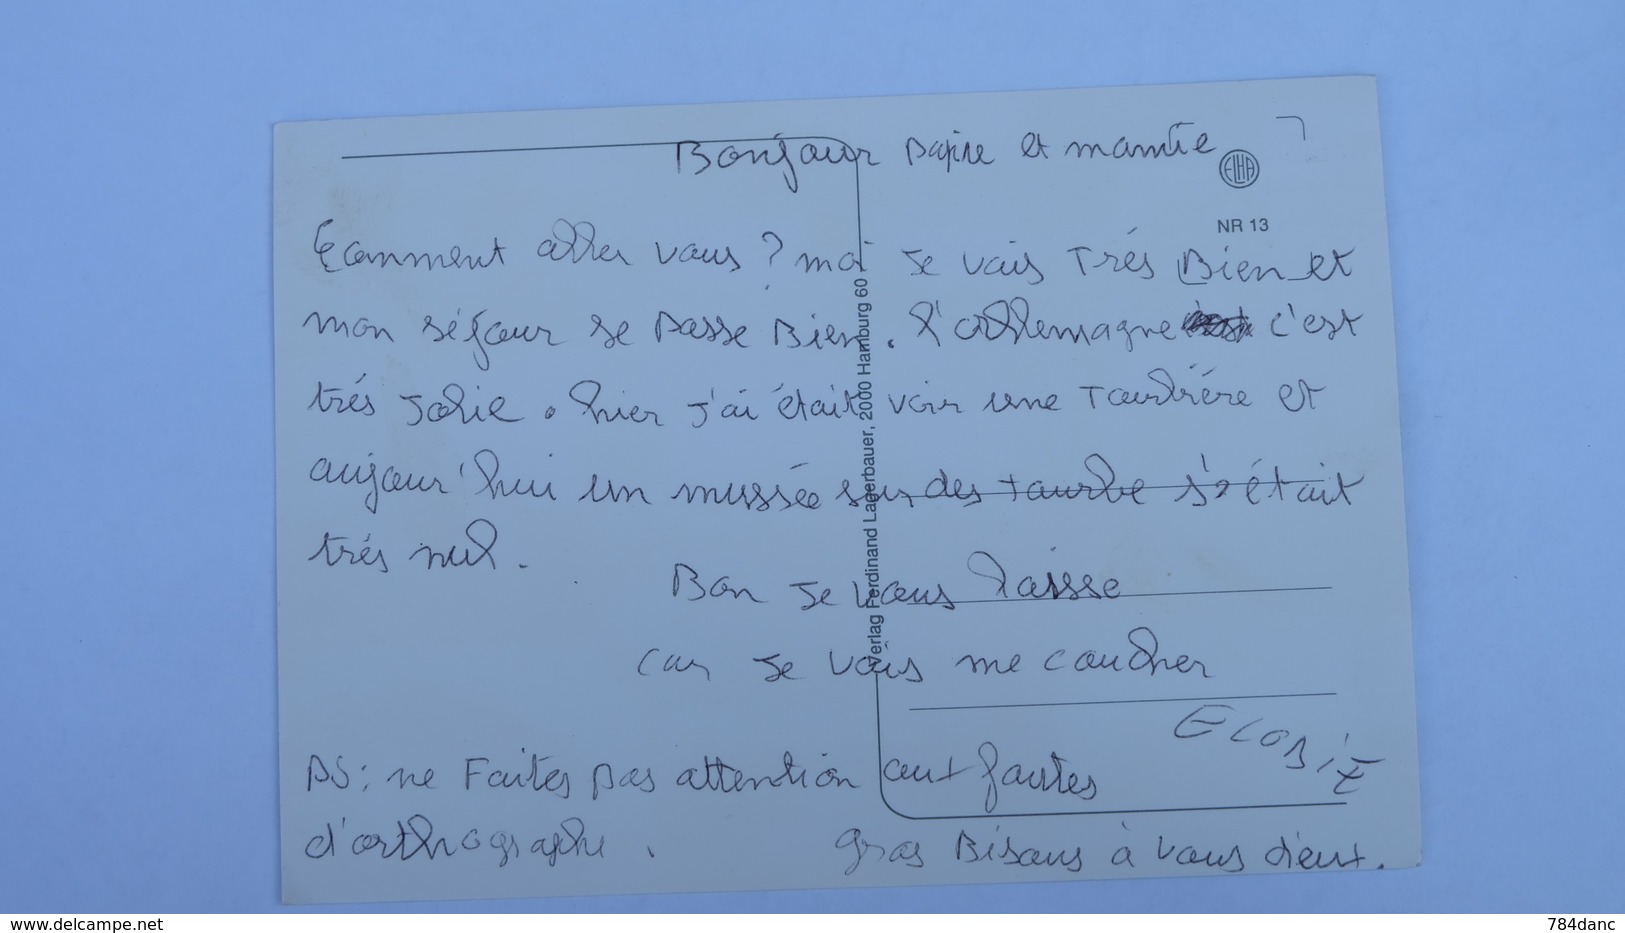 Bonjour papie et mamie
ELHA
NR 13
Comment aller vous ? moi je vais trés Bien et
mon séjour se passe Bien. l'allemagne c'est
trés jolie. hier j'ai était voir une tourbière et
aujour'hui un mussée sur des tourbe s'a était
trés nul.
Bon je vous laisse
car je vais me coucher
PS: ne Faites pas attention aut fautes
d'orthographe.
gros Bisous à vous dieut.
Verlag Ferdinand Lagerbauer, 2000 Hamburg 60
www.delcampe.net
784danc